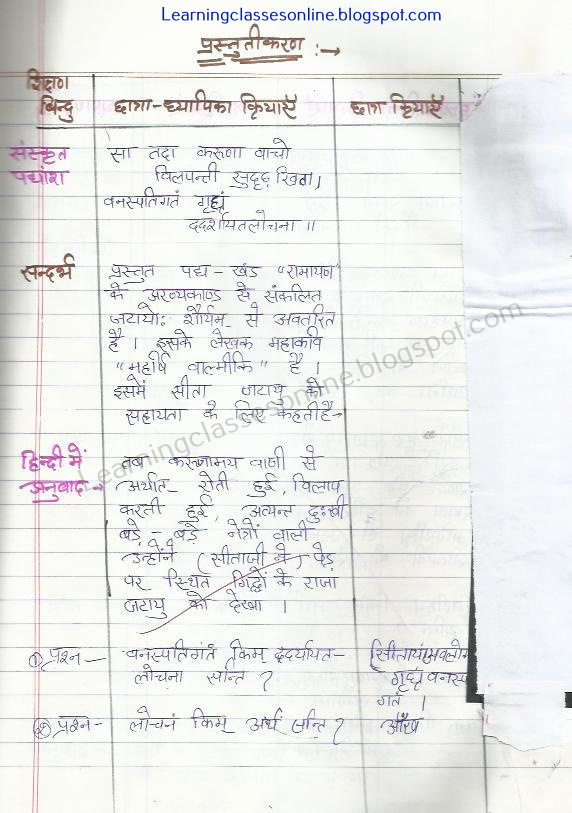 Learningclassesonline.blogspot.com
प्रस्तुतीकरण :→
शिक्षण
बिन्दु
छात्रा-ध्यापिका क्रियाएँ
छात्र क्रियाएँ
संस्कृत
पद्यांश
सा तदा करूणा वाचो
विलपन्ती सुदृढ़ खिता।
वनस्पतिगतं गृद्धं
ददर्शायतलोचना ॥
सन्दर्भ
प्रस्तुत पद्य - खंड "रामायण"
के अरण्यकाण्ड से संकलित
जटायोः शौर्यम् से अवतरित
है। इसके लेखक महाकवि
"महर्षि वाल्मीकि" है।
इसमें सीता जटायु को
सहायता के लिए कहती है-
हिन्दी में
अनुवाद →
तब करूणामय वाणी से
अर्थात- रोती हुई, विलाप
करती हुई, अत्यन्त दुःखी
बड़े - बड़े नेत्रों वाली
उन्होंने (सीताजी ने) पेड़
पर स्थित गिद्धों के राजा
जटायु को देखा।
① प्रश्न — वनस्पतिगतं किम्
लोचना सन्ति ?
गृद्धं वनस्प
गतं।
② प्रश्न - लोचनं किम् अर्थ सन्ति ?
आँख
Learningclassesonline.blogspot.com